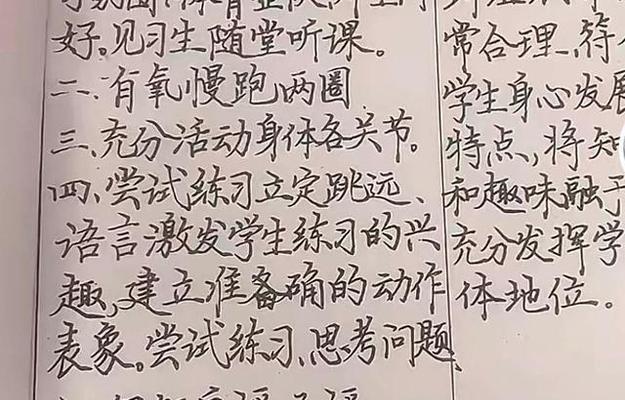 好。见习生随堂听课。
二、有氧慢跑两圈
三、充分活动身体各关节。
四、尝试练习立定跳远、
语言激发学生练习的兴
趣,建立准备确的动作
表象。尝试练习、思考问题
常合理、符
学生身心发展
特点,将知
和趣味融于
充分发挥学
体地位。